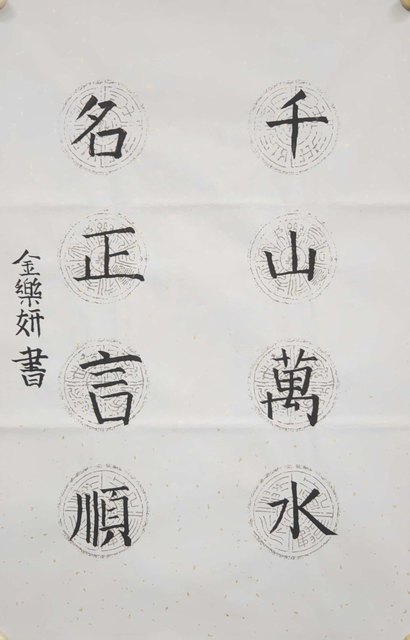 千山萬水
名正言順
金樂妍書